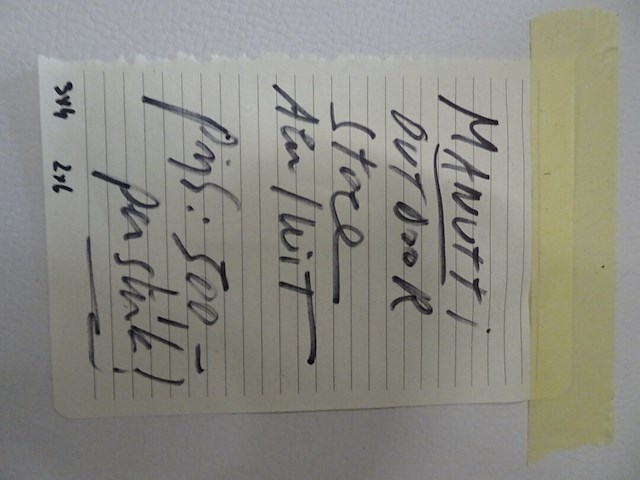 MANUTTi
OUTDOOR
Stone
Alu/WiT
prijs: 500 -
per stuk!
3x4 2x6